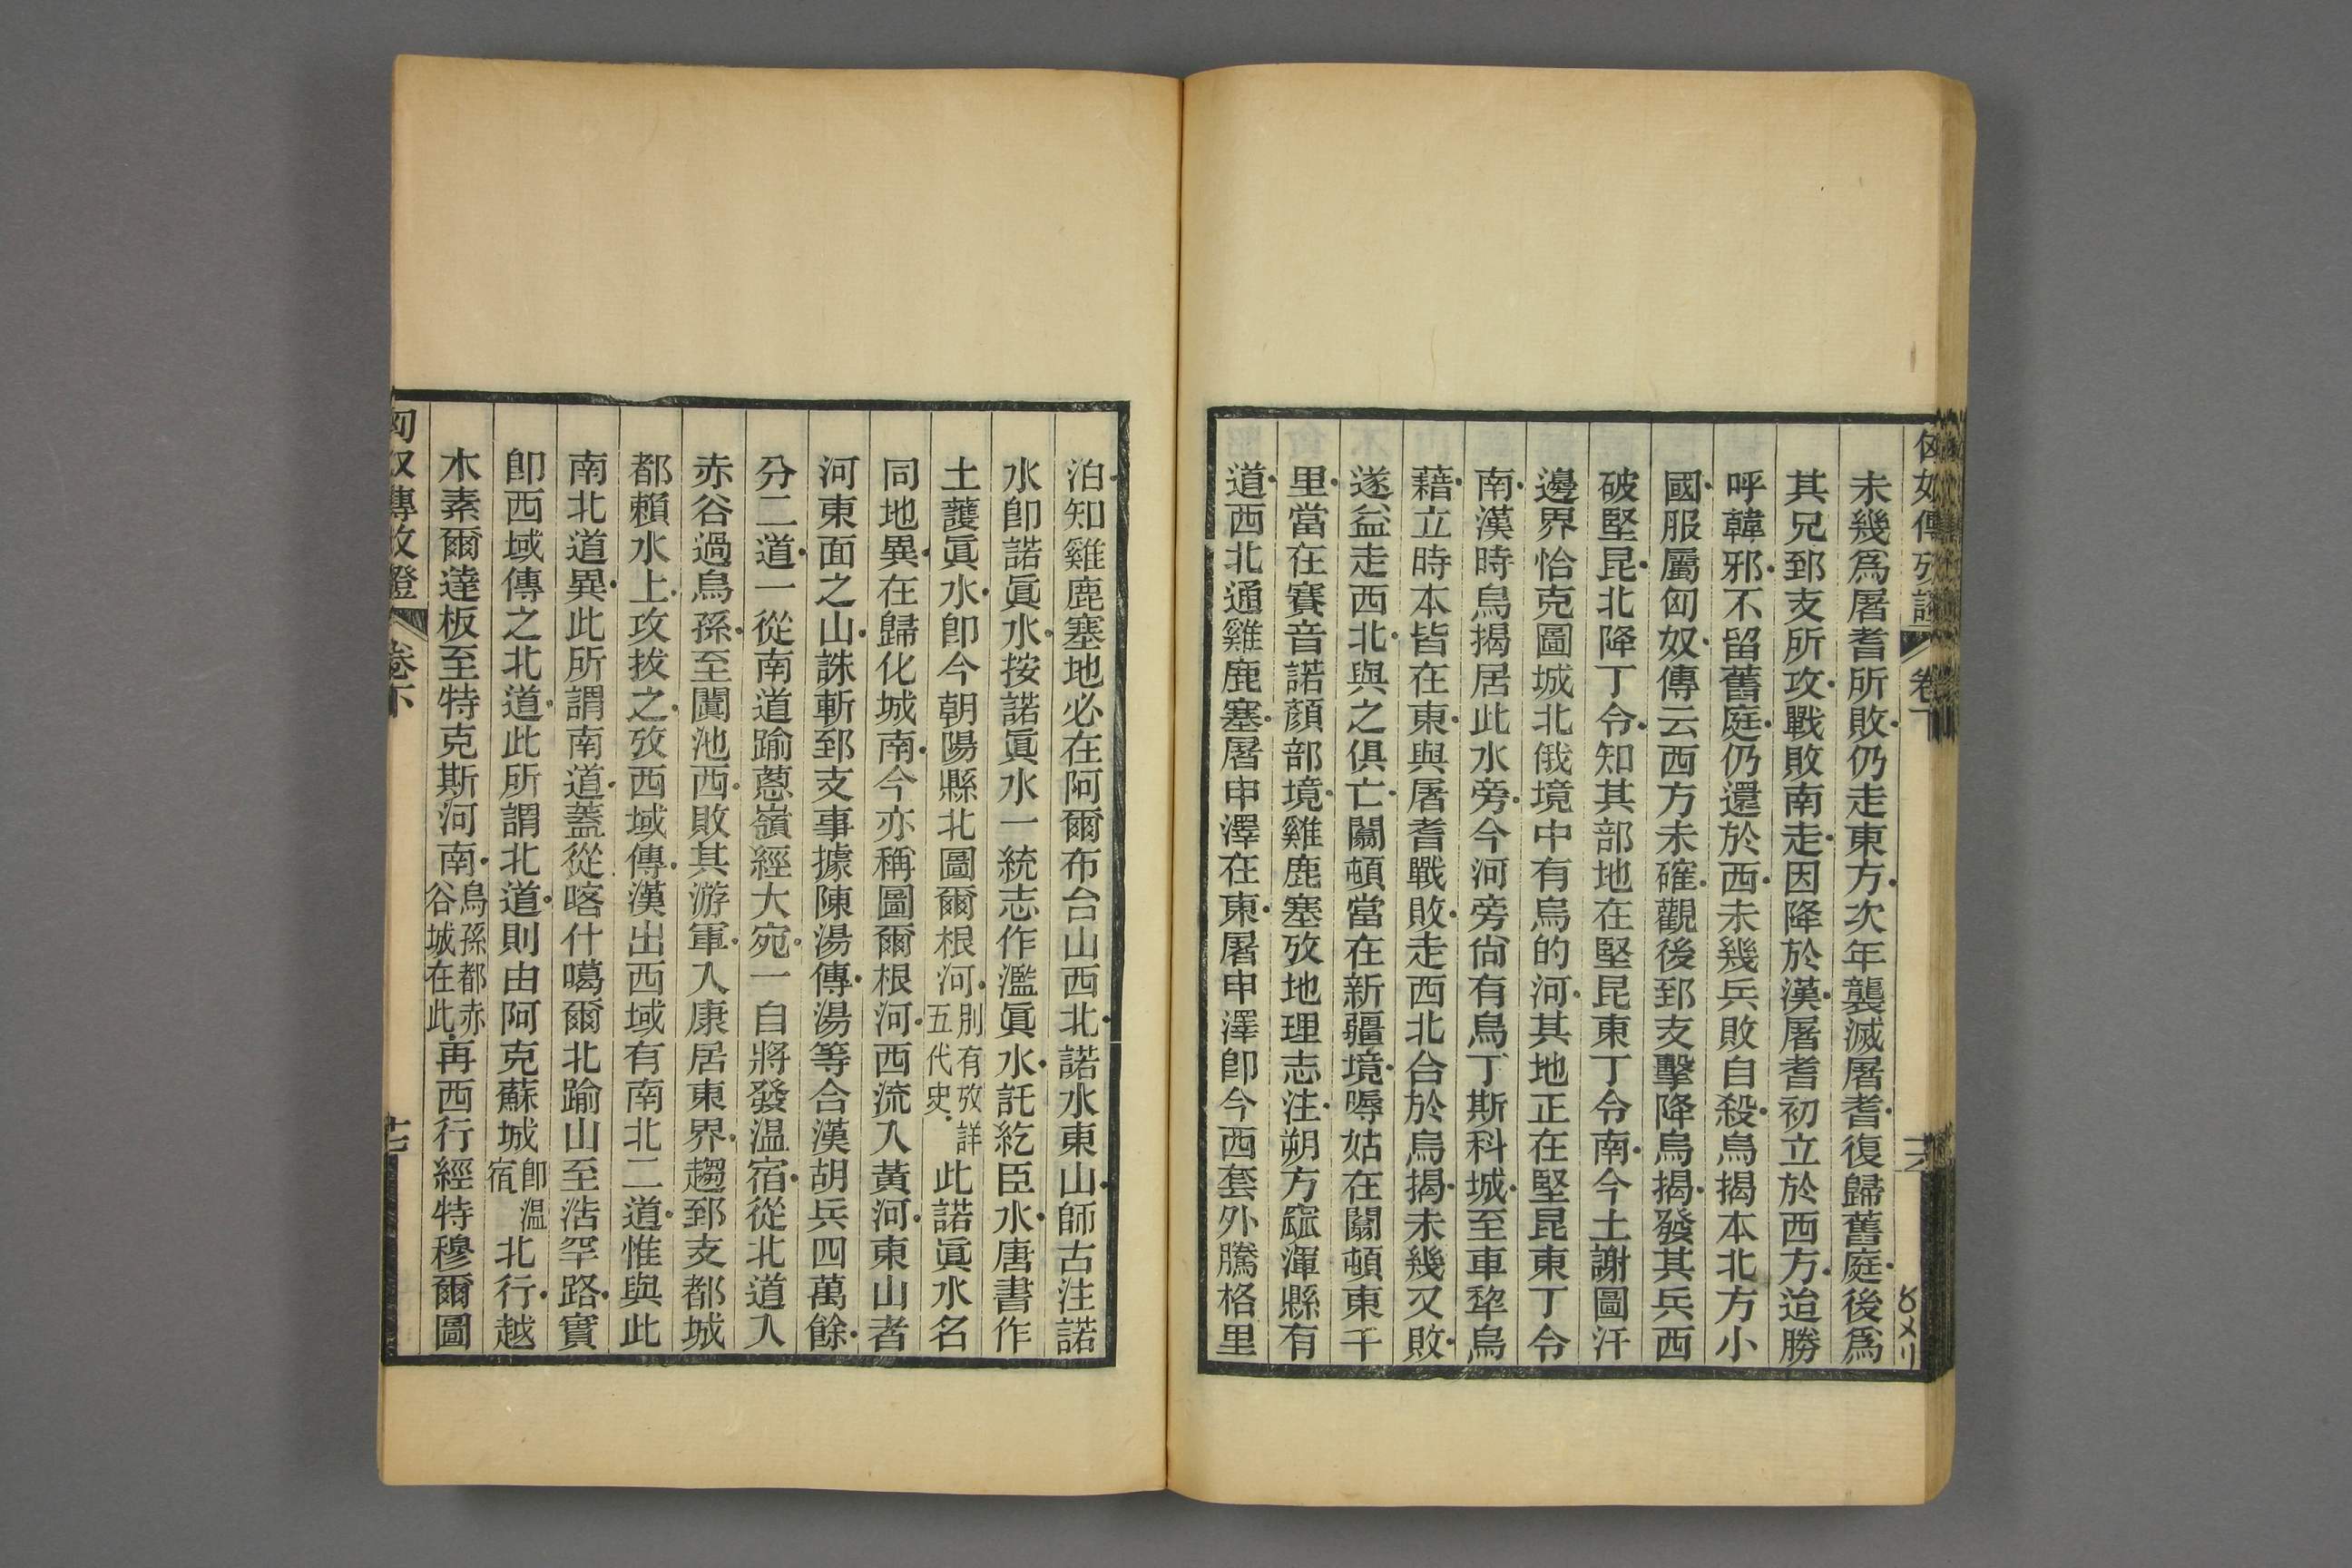 匈奴傳攷證 卷下 十六
未幾爲屠耆所敗仍走東方次年襲滅屠耆復歸舊庭後爲
其兄郅支所攻戰敗南走因降於漢屠耆初立於西方迨勝
呼韓邪不留舊庭仍還於西未幾兵敗自殺烏揭本北方小
國服屬匈奴傳云西方未確觀後郅支擊降烏揭發其兵西
破堅昆北降丁令知其部地在堅昆東丁令南今土謝圖汗
邊界恰克圖城北俄境中有烏的河其地正在堅昆東丁令
南漢時烏揭居此水旁今河旁尙有烏丁斯科城至車犂烏
藉立時本皆在東與屠耆戰敗走西北合於烏揭未幾又敗
遂益走西北與之俱亡闟頓當在新疆境嗕姑在闟頓東千
里當在賽音諾顏部境雞鹿塞攷地理志注朔方窳渾縣有
道西北通雞鹿塞屠申澤在東屠申澤卽今西套外騰格里
泊知雞鹿塞地必在阿爾布台山西北諾水東山師古注諾
水卽諾眞水按諾眞水一統志作濫眞水訖紇臣水唐書作
土護眞水卽今朝陽縣北圖爾根河別有攷詳五代史此諾眞水名
同地異在歸化城南今亦稱圖爾根河西流入黃河東山者
河東面之山誅斬郅支事據陳湯傳湯等合漢胡兵四萬餘
分二道一從南道踰蔥嶺經大宛一自將發温宿從北道入
赤谷過烏孫至闐池西敗其游軍入康居東界趨郅支都城
都賴水上攻拔之攷西域傳漢出西域有南北二道惟與此
南北道異此所謂南道蓋從喀什噶爾北踰山至浩罕路實
卽西域傳之北道此所謂北道則由阿克蘇城卽温宿北行越
木素爾達板至特克斯河南烏孫都赤谷城在此再西行經特穆爾圖
匈奴傳攷證 卷下 十七